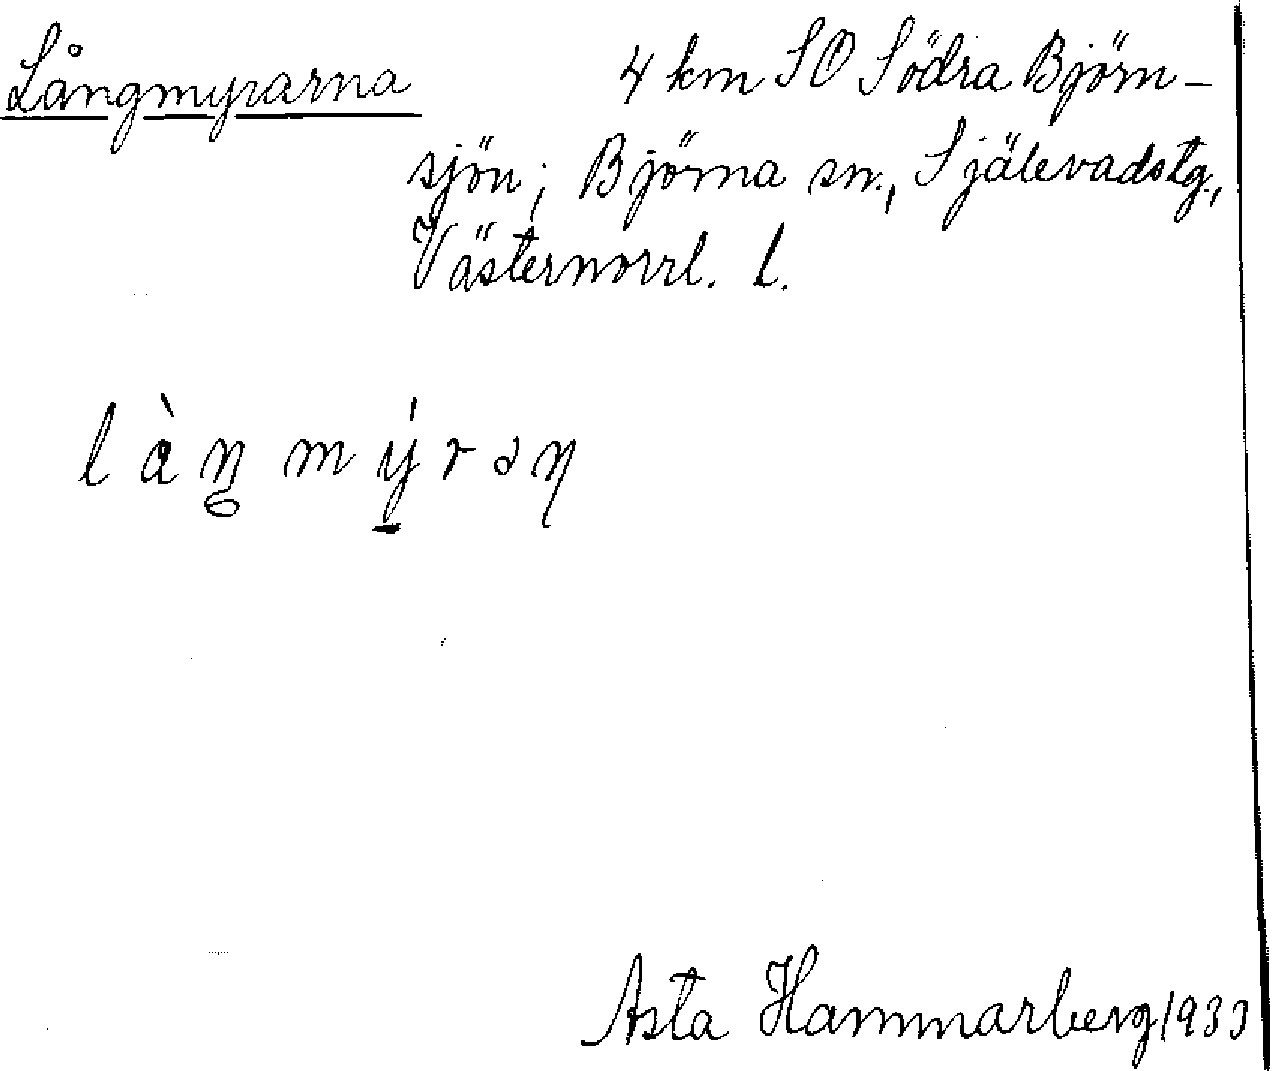 Långmyrarna 4 km SO Södra Björn-
sjön; Björna sn., Själevadstg.,
Västernorrl. l.
l à ŋ m ý r ə ŋ
Asta Hammarberg 1933